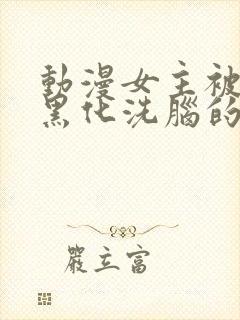 動漫女主被
黑化洗腦的
嚴立富